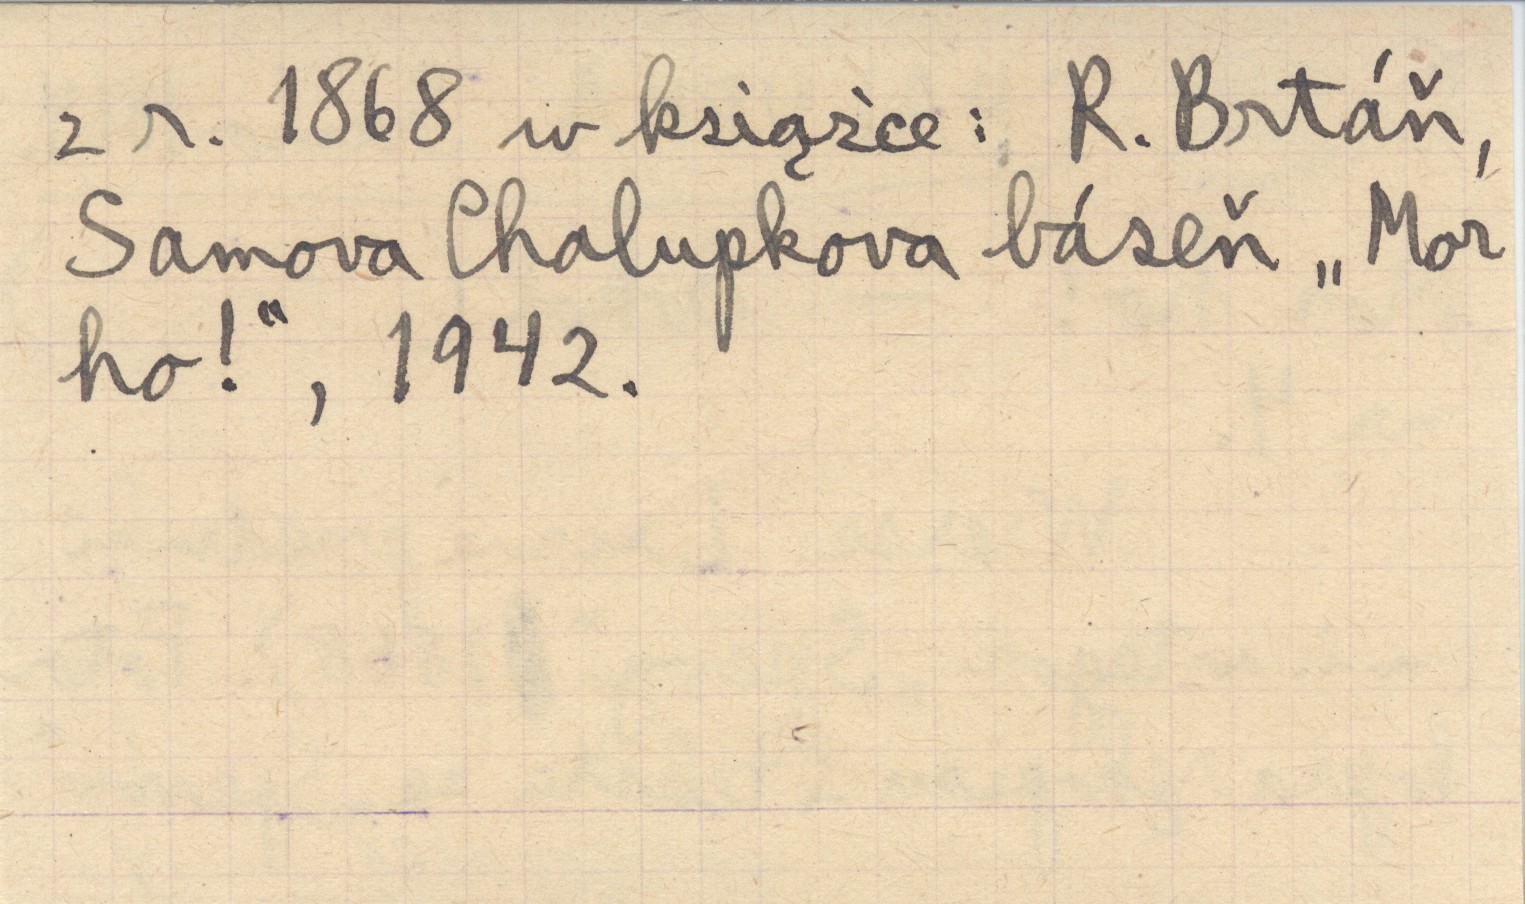 z r. 1868 w książce: R. Brtáň,
Samova Chalupkova báseň „Mor
ho!“, 1942.